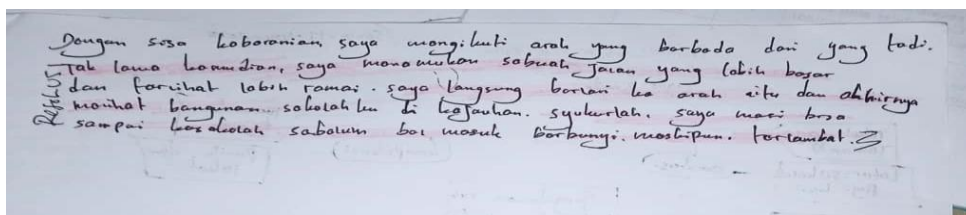 Dengan sisa keberanian, saya mengikuti arah yang berbeda dari yang tadi.
Tak lama kemudian, saya menemukan sebuah jalan yang lebih besar
dan terlihat lebih ramai. saya langsung berlari ke arah situ dan akhirnya
melihat bangunan sekolahku di kejauhan. syukurlah. saya masi bisa
sampai kesekolah sebelum bel masuk berbunyi. meskipun. terlambat.